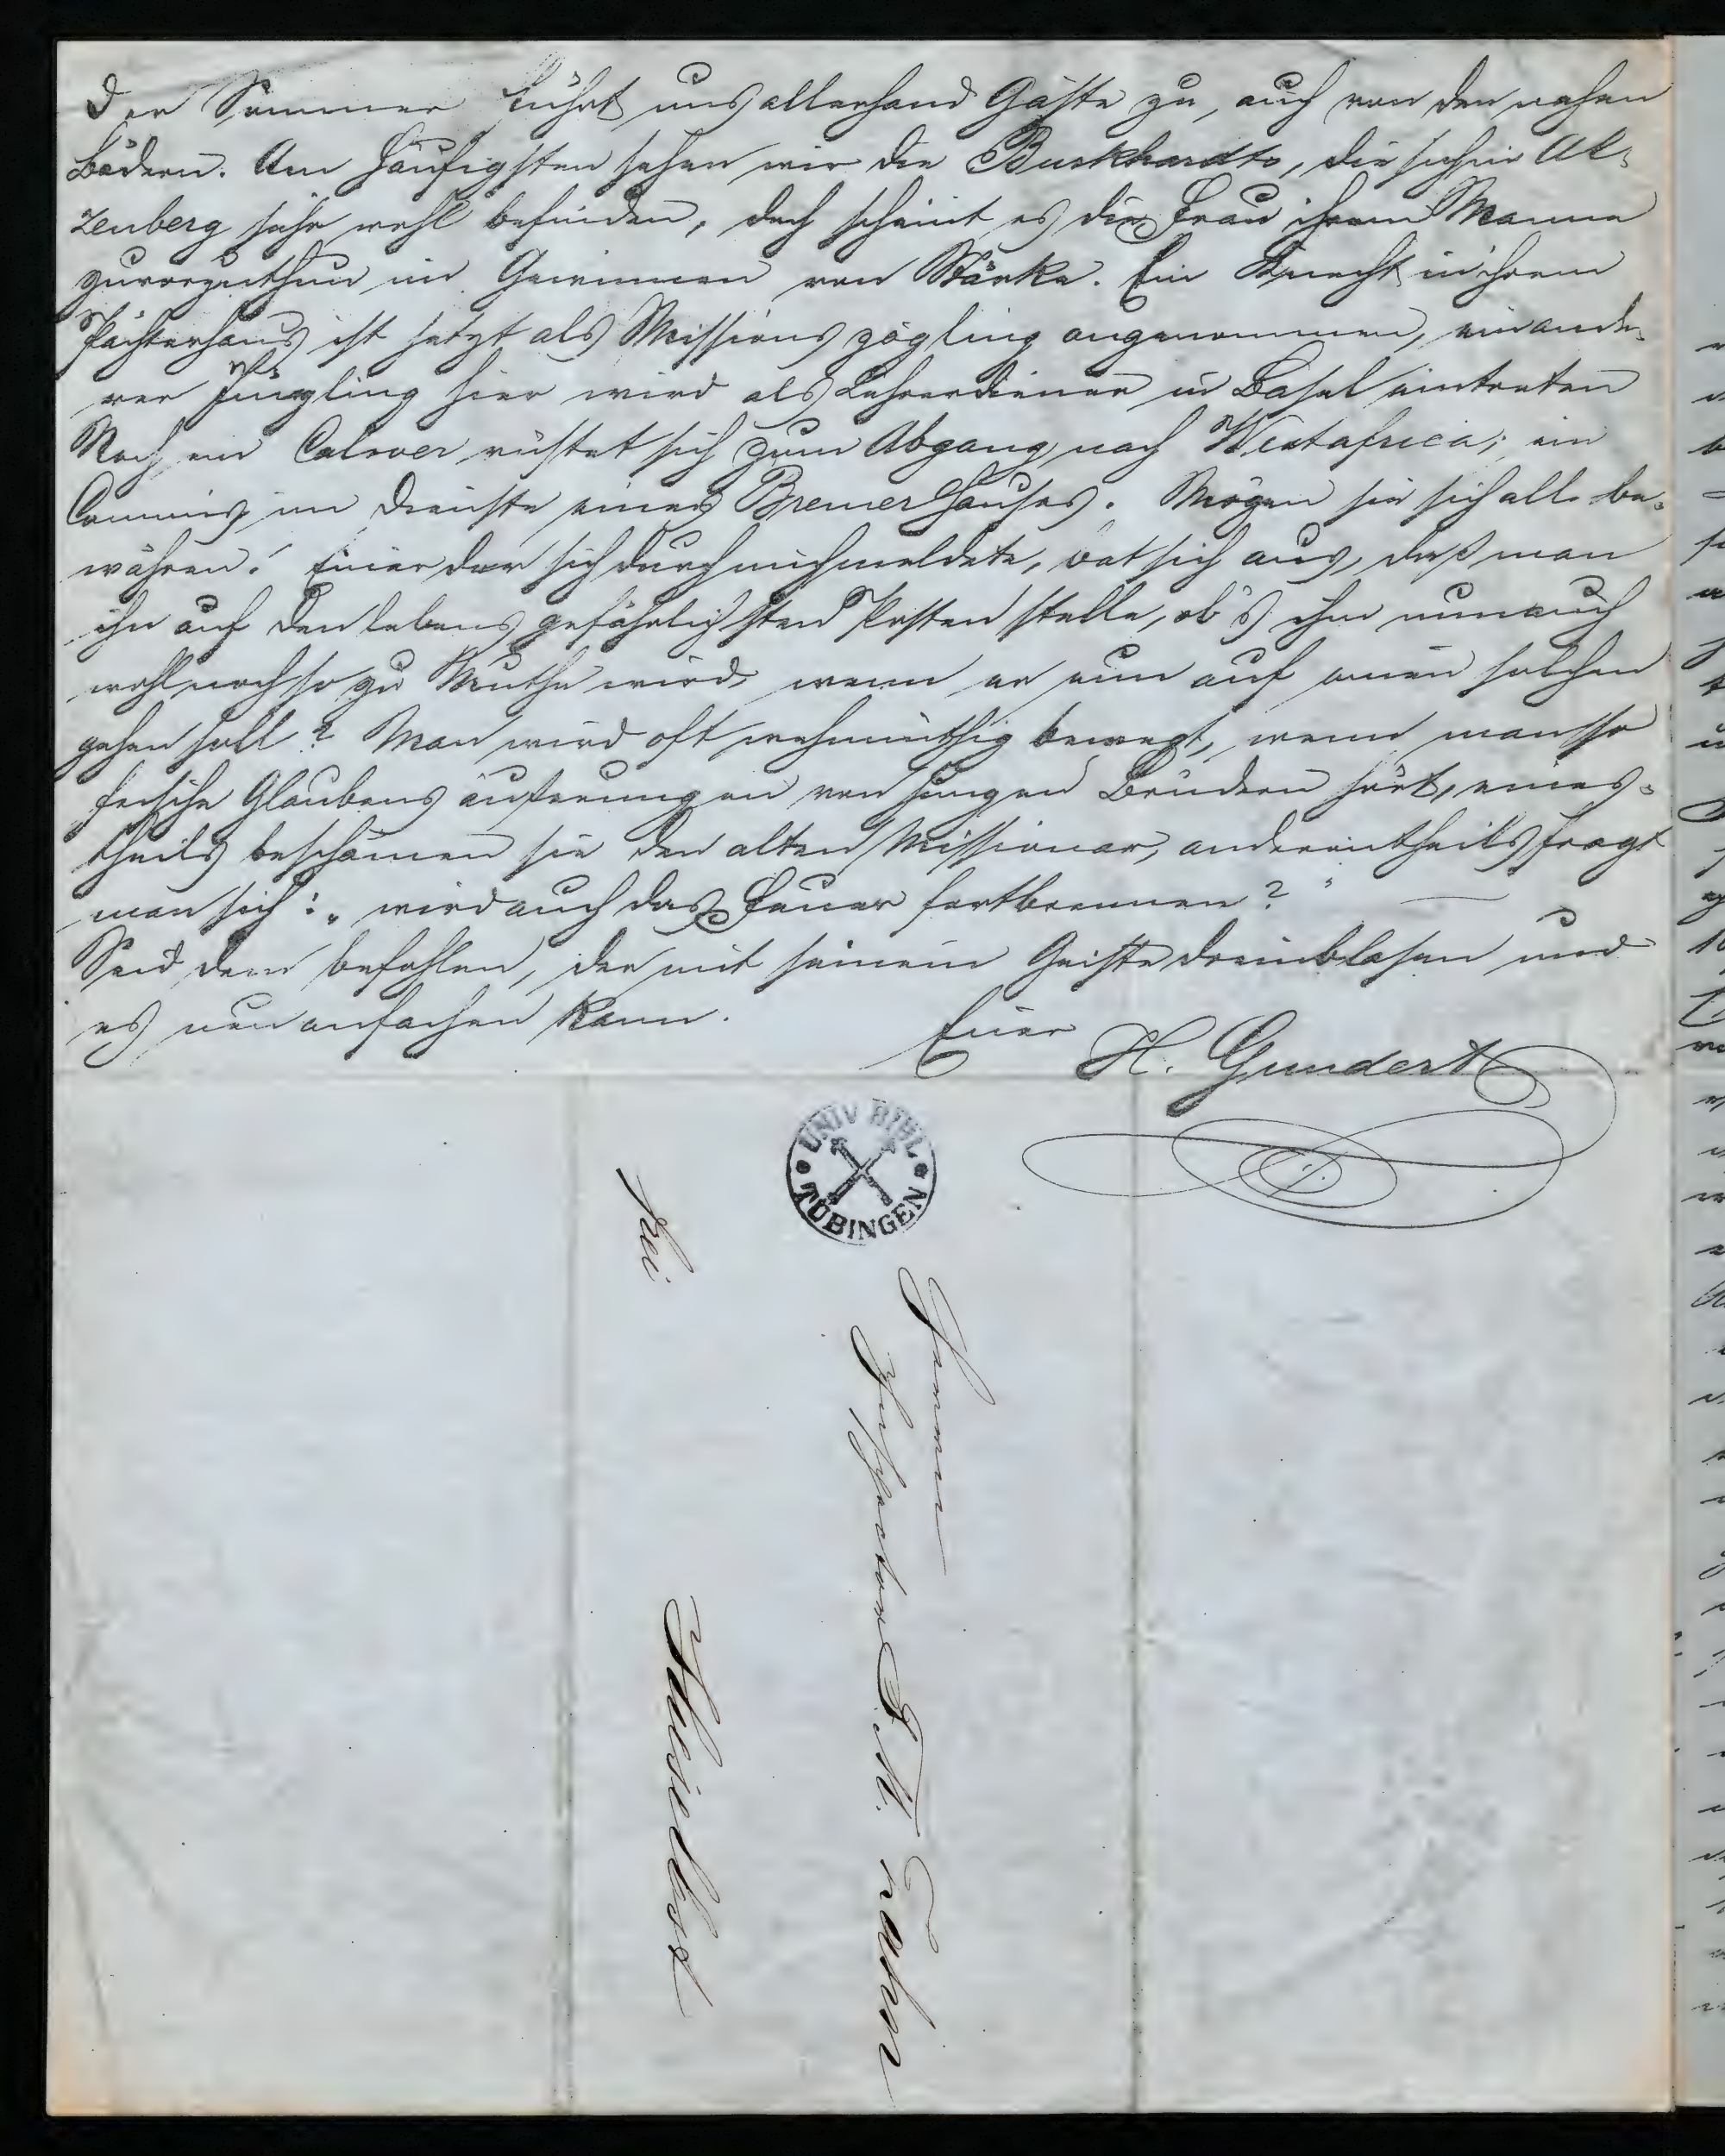 Der Sommer führt uns allerhand Gäste zu, auch von den nahen
Bädern. Am häufigsten sehen wir die Burkhardts, die sich in Al¬
zenberg sehr wohl befinden, doch scheint es die Frau ihrem Manne
zuvorzuthun im Gewinnen von Stärke. Ein Knecht in ihrem
Pächterhaus ist jetzt als Missionszögling angenommen, ein ande¬
rer Jüngling hier wird als Lehrerdiener in Basel eintreten
Noch ein Calwer rüstet sich zum Abgang nach Westafrica; ein
Commis im Dienste eines Bremer Hauses. Mögen sie sich alle be¬
währen! Einer der sich durch mich meldete, bat sich aus, daß man
ihn auf den lebensgefährlichsten Posten stelle, ob's ihm nun auch
wohl noch so zu Muthe wird, wenn er nun auf einen solchen
gehen soll? Man wird oft wehmüthig bewegt, wenn man so
frische Glaubensäußerungen von jungen Brüdern hört, eines¬
theils beschämen sie den alten Missionar, anderentheils fragt
man sich: „wird auch das Feuer fortbrennen?" —
Seid dem befohlen, der mit seinem Geiste dreinblasen und
es neu anfachen kann.
Euer H. Gundert
UNIV BIBL
TÜBINGEN
Herrn
Inspector F. M. Zahn
frei